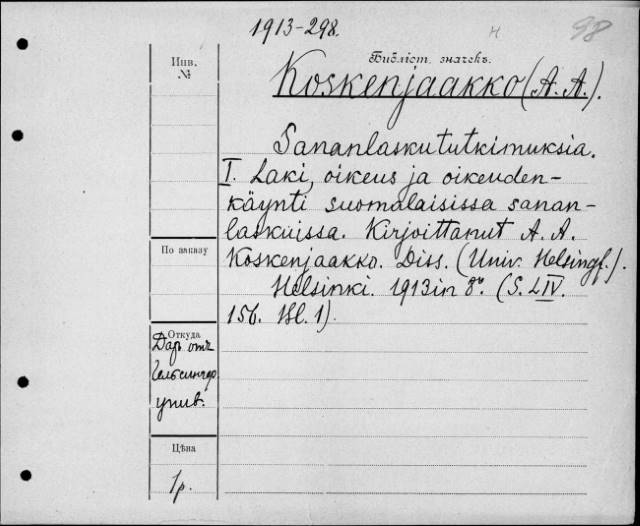 1913-298.
98
Инв.
№
Библіот. значекъ.
Koskenjaakko (A. A.).
Sananlaskututkimuksia.
I. Laki, oikeus ja oikeuden-
käynti suomalaisissa sanan-
laskuissa. Kirjoittanut A. A.
По заказу
Koskenjaakko. Diss. (Univ. Helsingf.).
Helsinki. 1913 in 8°. (S. LIV.
156. Bl. 1).
Откуда
Даръ отъ
Гельсингфор.
унив.
Цѣна
1 р.